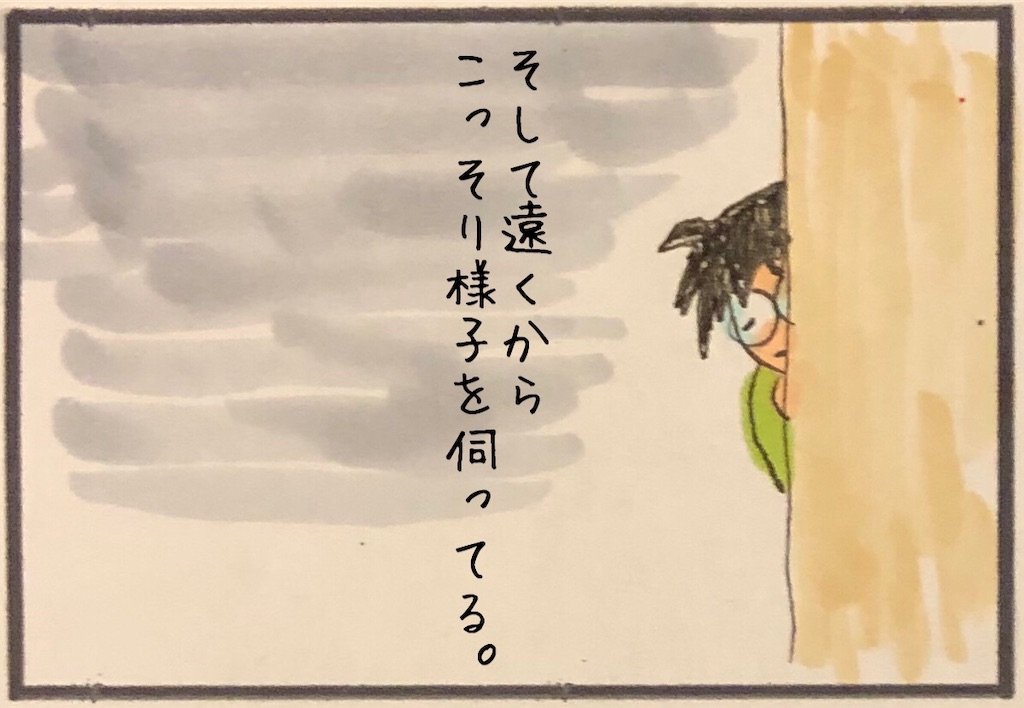 そして遠くから
こっそり様子を伺ってる。